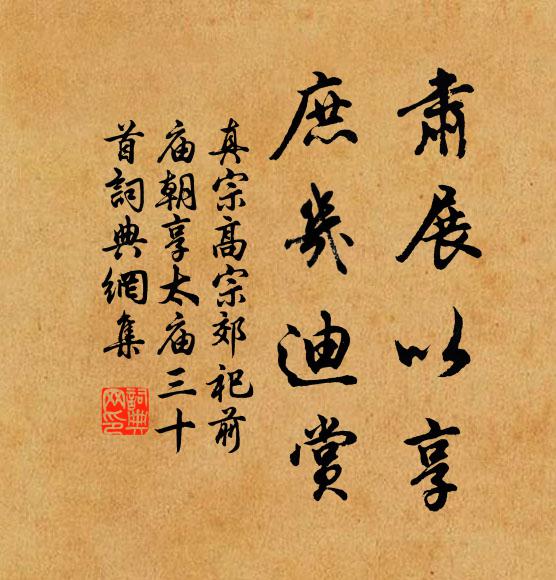 肅展以享
庶幾迪賞
真宗高宗郊祀前
庙朝享太庙三十
首詞典網集
詞典
网印